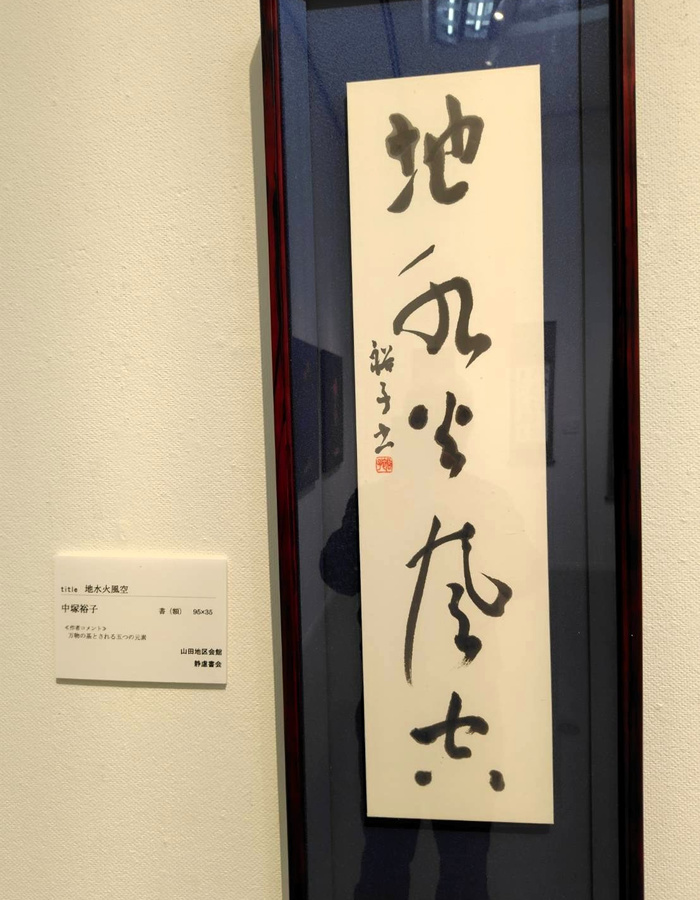 地水火風空
裕子書
title 地水火風空
中塚裕子 書（額） 95×35
≪作者コメント≫
万物の基とされる五つの元素
山田地区会館
静虚書会